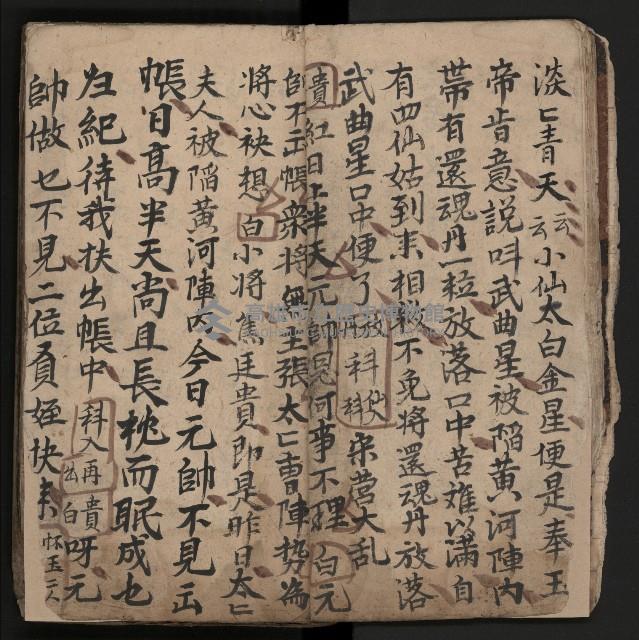 淡匕青天云云小仙太白金星便是奉玉
帝旨意說叫武曲星被陷黃河陣內
帶有還魂丹一粒放落口中苦难以滿自
有四仙姑到来相救不免將還魂丹放落
武曲星口中便了放丹科仙女救科宋营大乱
貴紅日上半天元帥見何事不理白元
帥不出帳衆將無主張太匕曹陣势為
將心袂想白小將焦廷貴即是昨日太匕
夫人被陷黃河陣內今日元帥不見出
帳日高半天尚且長枕而眠成乜
归紀待我扶出帳中科入再出貴白呀元
帥做乜不見二位貟姪快来怀玉二人